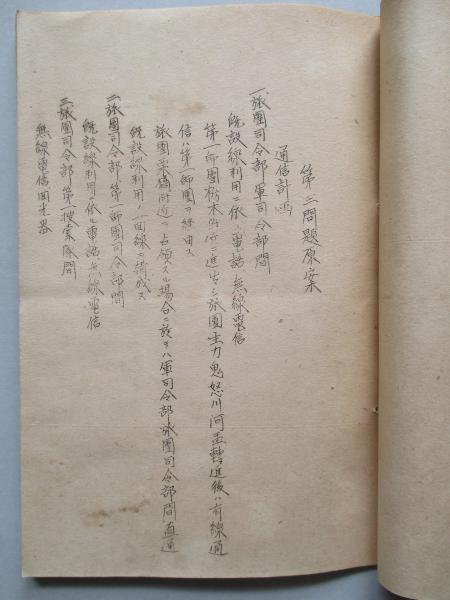 第二問題原案
通信計画
一、旅團司令部軍司令部間
既設線利用ニ依ル電話、無線電信
第一師團栃木附近ニ進出シ旅團主力鬼怒川河孟轉進後ハ有線通
信ハ第一師團ヲ経由ス
旅團 附近ヲ占領スル場合ニ於テハ軍司令部旅團司令部間直通
既設線利用ノ一回線ヲ構成ス
二、旅團司令部第一師團司令部間
既設線利用ニ依ル電話、無線電信
三、旅團司令部、第一捜索隊間
無線電信回光器